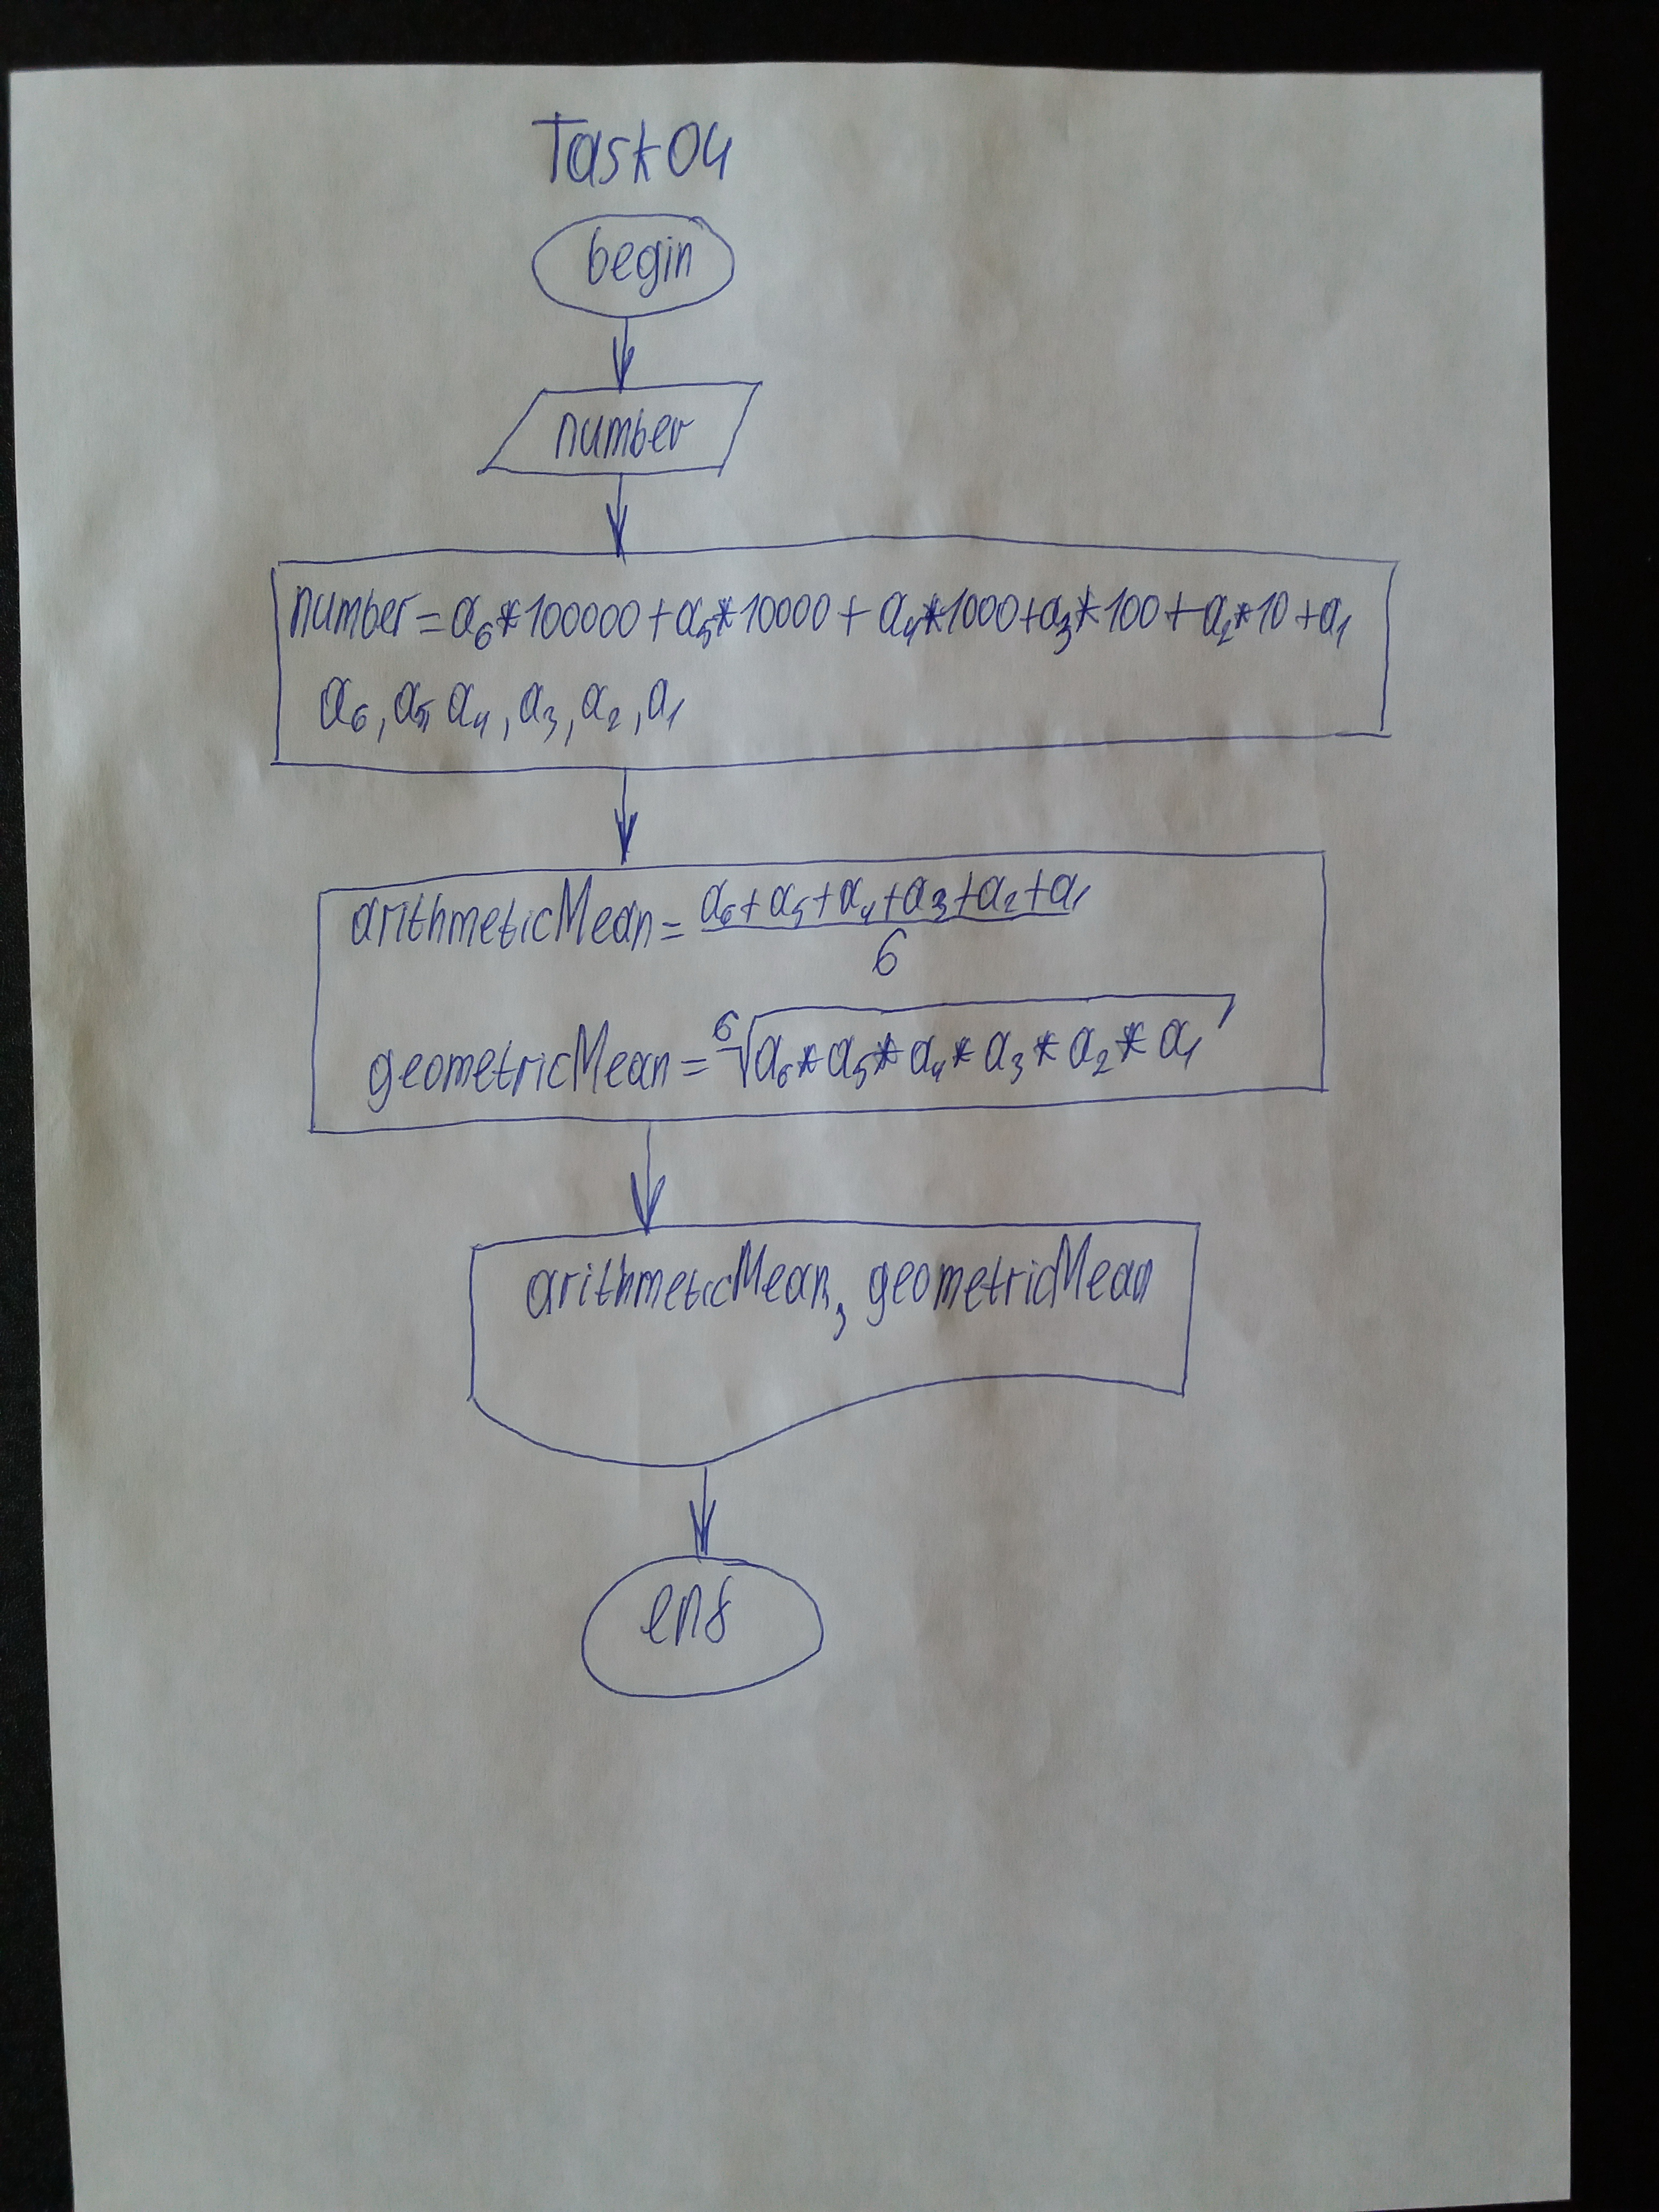 Task04
begin
number
number = a₆*100000 + a₅*10000 + a₄*1000 + a₃*100 + a₂*10 + a₁
a₆, a₅, a₄, a₃, a₂, a₁
arithmeticMean = (a₆+a₅+a₄+a₃+a₂+a₁)/6
geometricMean = ⁶√(a₆*a₅*a₄*a₃*a₂*a₁)
arithmeticMean, geometricMean
end